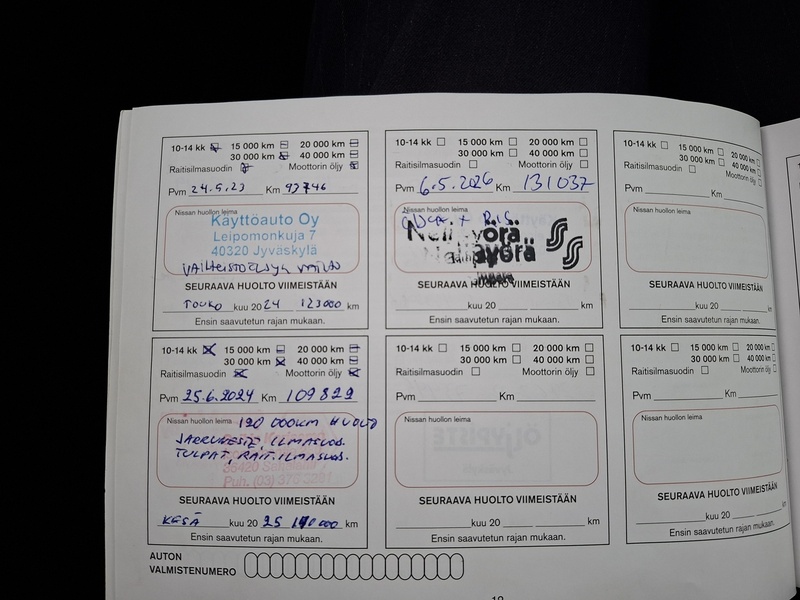 10-14 kk 15 000 km 20 000 km
30 000 km 40 000 km
Raitisilmasuodin Moottorin öljy
Pvm 24.9.23 Km 93746
Nissan huollon leima
Käyttöauto Oy
Leipomonkuja 7
40320 Jyväskylä
SEURAAVA HUOLTO VIIMEISTÄÄN
TOUKO kuu 20 24 123000 km
Ensin saavutetun rajan mukaan.
10-14 kk 15 000 km 20 000 km
30 000 km 40 000 km
Raitisilmasuodin Moottorin öljy
Pvm 25.6.2024 Km 109829
Nissan huollon leima 120 000KM HUOLTO
JARRUNESTE, ILMASUOD.
TULPAT, RAIT.ILMASUOD.
Puh. (03)
SEURAAVA HUOLTO VIIMEISTÄÄN
KESÄ kuu 20 25 km
Ensin saavutetun rajan mukaan.
10-14 kk 15 000 km 20 000 km
30 000 km 40 000 km
Raitisilmasuodin Moottorin öljy
Pvm 6.5.2026 Km 131037
Nissan huollon leima
SEURAAVA HUOLTO VIIMEISTÄÄN
kuu 20 km
Ensin saavutetun rajan mukaan.
10-14 kk 15 000 km 20 000 km
30 000 km 40 000 km
Raitisilmasuodin Moottorin öljy
Pvm Km
Nissan huollon leima
SEURAAVA HUOLTO VIIMEISTÄÄN
kuu 20 km
Ensin saavutetun rajan mukaan.
10-14 kk 15 000 km 20 000 km
30 000 km 40 000 km
Raitisilmasuodin Moottorin öljy
Pvm Km
Nissan huollon leima
SEURAAVA HUOLTO VIIMEISTÄÄN
kuu 20 km
Ensin saavutetun rajan mukaan.
10-14 kk 15 000 km 20 000 km
30 000 km 40 000 km
Raitisilmasuodin Moottorin öljy
Pvm Km
Nissan huollon leima
SEURAAVA HUOLTO VIIMEISTÄÄN
kuu 20 km
Ensin saavutetun rajan mukaan.
AUTON
VALMISTENUMERO